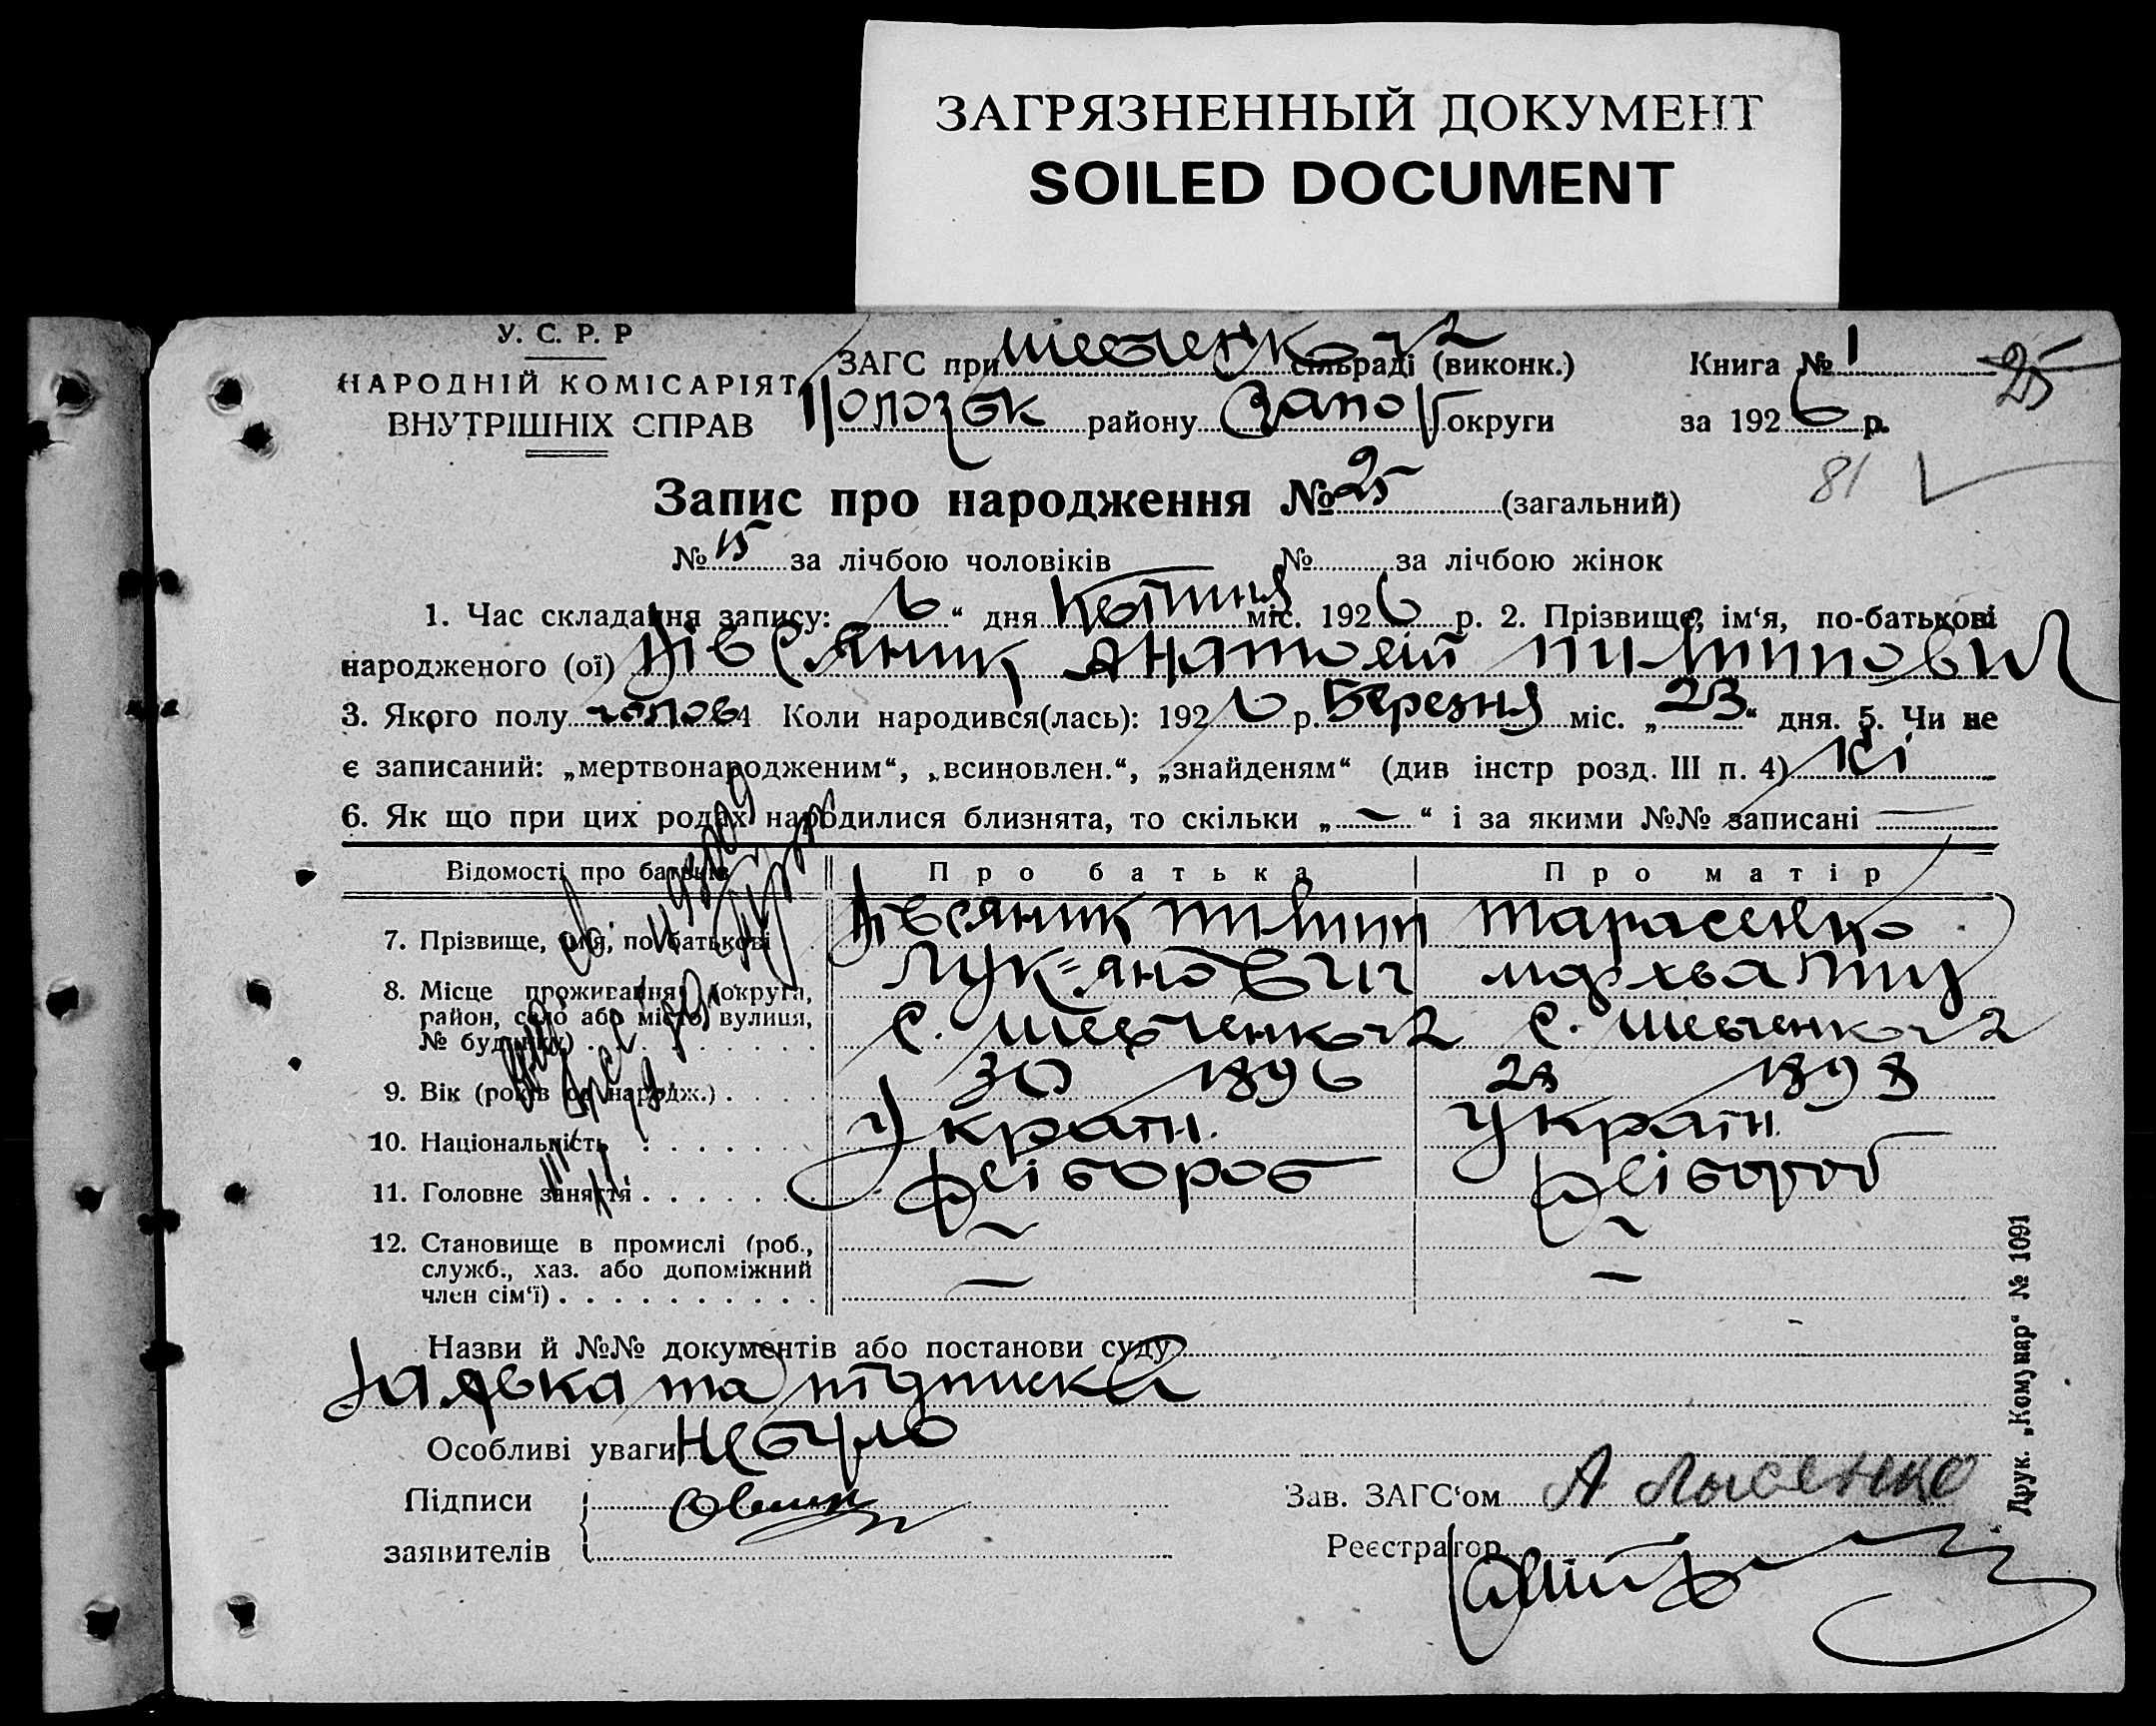 ЗАГРЯЗНЕННЫЙ ДОКУМЕНТ
SOILED DOCUMENT
У. С. Р. Р
НАРОДНІЙ КОМІСАРІЯТ
ВНУТРІШНІХ СПРАВ
ЗАГС при сільраді (виконк.)
Пологівськ району Запор округи
Книга № 1
25
за 1926 р.
81
Запис про народження № 25 (загальний)
№ 15 за лічбою чоловіків № за лічбою жінок
1. Час складання запису: 6 “ дня Квітня міс. 1926 р. 2. Прізвище, ім‘я, по-батькові
народженого (ої) Вівсяник Анатолій Пилипович
3. Якого полу чолов 4 Коли народився(лась): 1926 р. Березня міс. „ 23 “ дня. 5. Чи не
є записаний: „мертвонародженим“, „всиновлен.“, „знайденям“ (див інстр розд. III п. 4) Ні
6. Як що при цих родах народилися близнята, то скільки „ — “ і за якими №№ записані —
Відомості про батьків
Про батька
Про матір
7. Прізвище, імя, по-батькові
Вівсяник Пилип
Лук=янович
Тарасенко
8. Місце проживання (округа,
район, село або місто, вулиця,
№ будинку)
с. Шевченкова
с. Шевченкова
9. Вік (років од народж.)
30 1896
28 1898
10. Національність
Україн.
Україн.
11. Головне заняття
Хлібороб
Хлібороб
12. Становище в промислі (роб.,
служб., хаз. або допоміжний
член сім‘ї)
—
—
Назви й №№ документів або постанови суду
Заявка та підписка
Особливі уваги Не було
Підписи
заявителів
Зав. ЗАГС‘ом А Лысенко
Реєстратор
Друк. „Комунар“ № 1091